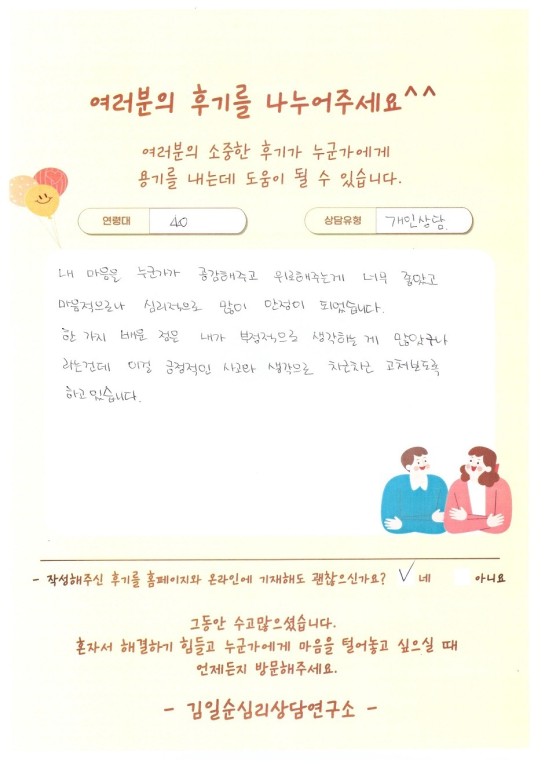 여러분의 후기를 나누어주세요^^
여러분의 소중한 후기가 누군가에게
용기를 내는데 도움이 될 수 있습니다.
연령대 40
상담유형 개인상담.
내 마음을 누군가가 공감해주고 위로해주는게 너무 좋았고
마음적으로나 심리적으로 많이 안정이 되었습니다.
한 가지 배운 점은 내가 부정적으로 생각하는 게 많았구나
라는건데 이걸 긍정적인 사고와 생각으로 차근차근 고쳐보도록
하고있습니다.
- 작성해주신 후기를 홈페이지와 온라인에 기재해도 괜찮으신가요? ✓ 네 아니요
그동안 수고많으셨습니다.
혼자서 해결하기 힘들고 누군가에게 마음을 털어놓고 싶으실 때
언제든지 방문해주세요.
- 김일순심리상담연구소 -